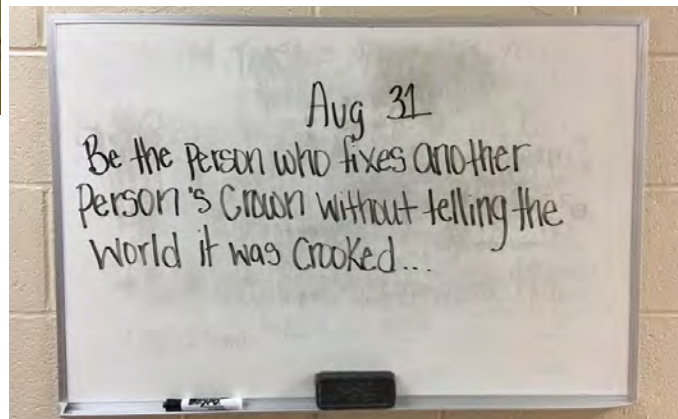 Aug 31
Be the Person who fixes another
Person's Crown without telling the
World it was Crooked...